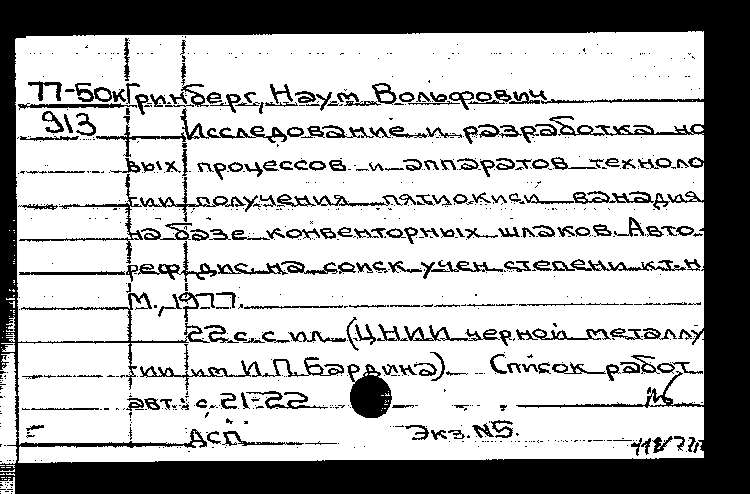 77-50к Гринберг, Наум Вольфович
913 Исследование и разработка но
вых процессов и аппаратов техноло
гии получения пятиокиси ванадия
на базе конвенторных шлаков. Авто-
реф. дис. на соиск учен степени к.т.н
М., 1977.
22 с. с ил. (ЦНИИ черной металлу
гии им И.П. Бардина). Список работ
авт.: с. 21-22
АСП Экз. N5.